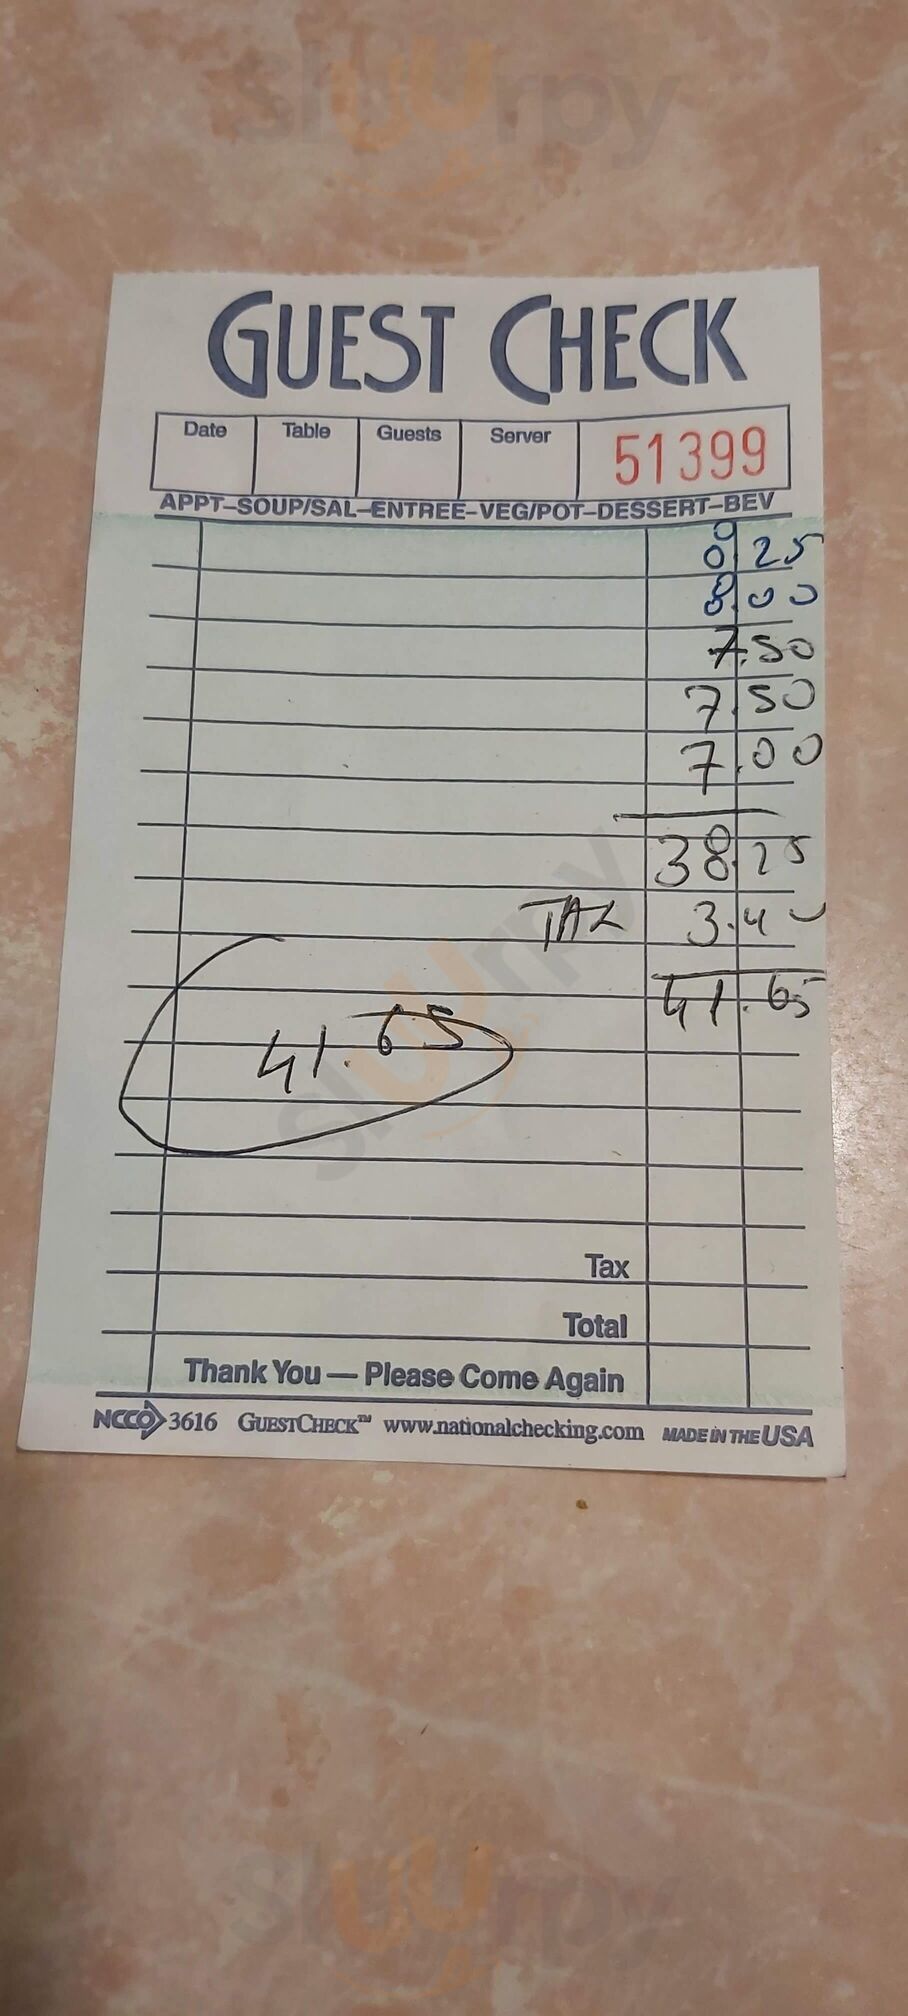 GUEST CHECK
Date Table Guests Server 51399
APPT–SOUP/SAL–ENTREE–VEG/POT–DESSERT–BEV
8.25
8.00
7.50
7.50
7.00
38.25
TAX 3.40
41.65
41.65
Tax
Total
Thank You — Please Come Again
NCCO 3616 GUESTCHECK™ www.nationalchecking.com MADE IN THE USA
sluurpy
sluurpy
sluurpy